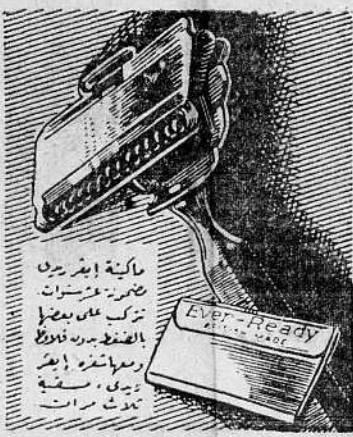 ماكينة إيفر ريدى
مضمونة عشر سنوات
تركب على بعضها
بالضغط بدون قلاووظ
ومعها شفرة إيفر
ريدى، مسقية
ثلاث مرات
Ever-Ready